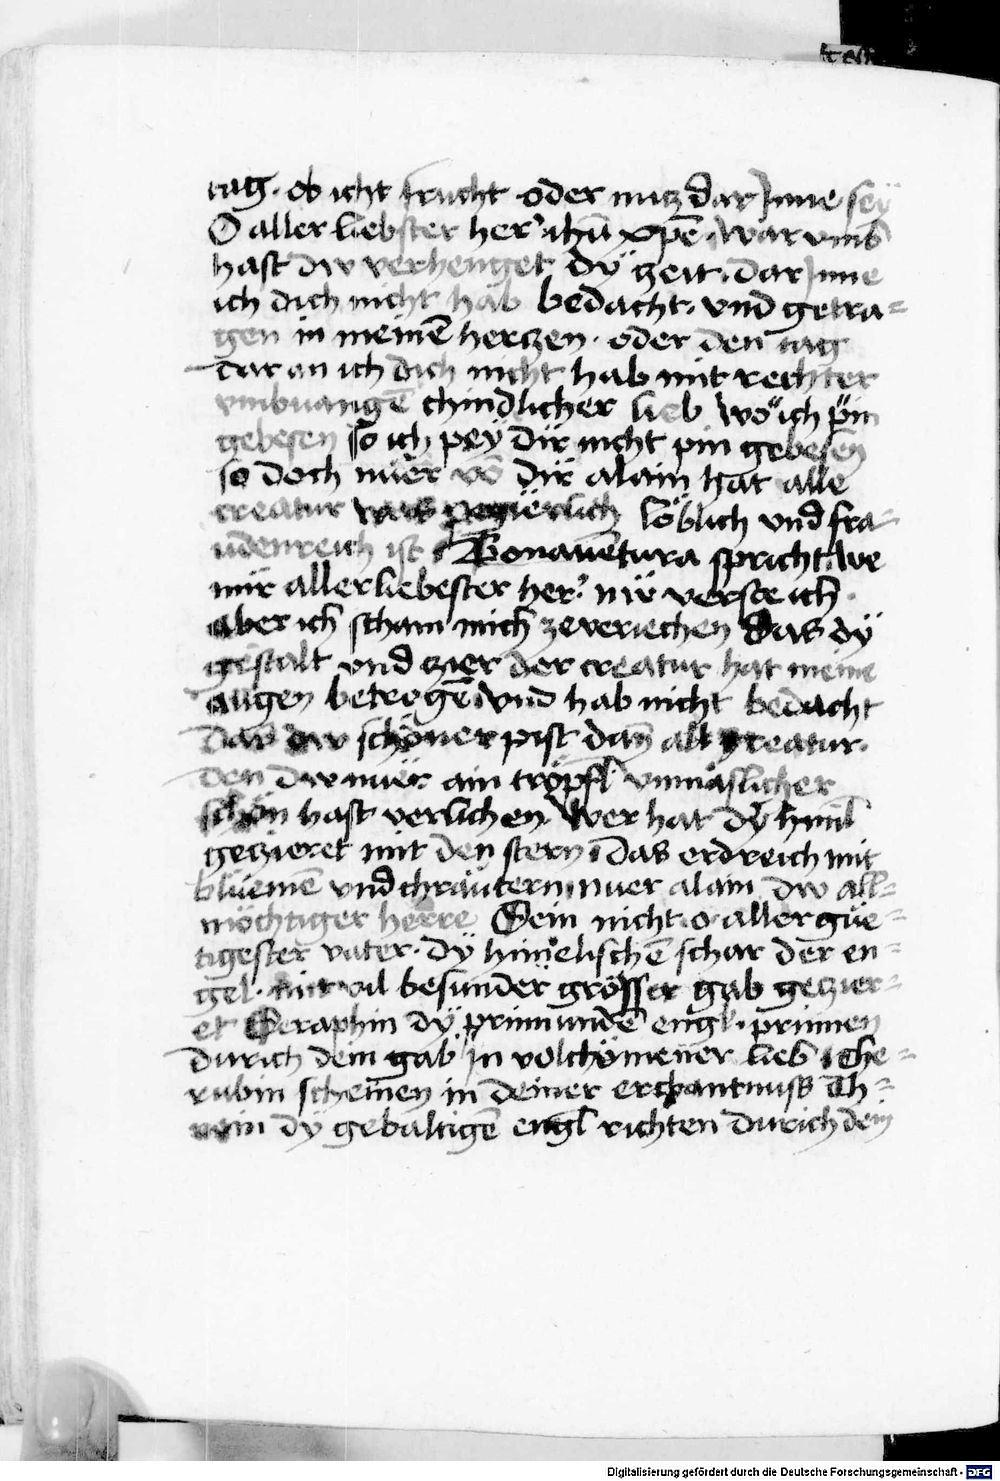 tag. ob icht frucht oder nutz dar Inne seÿ
O aller liebster her' ihū xpē. War vmb
hast dw verhenget dÿ zeit. dar Inne
ich dich nicht hab bedacht. vnd getra=
gen in meinē herczen. oder den tag
dar an ich dich nicht hab mit rechter
vmbuangē chindlicher lieb wo ich pin
gebesen so ich peÿ dir nicht pin gebesen
so doch nuer vō dir alain hat alle
creatur was löblich vnd fra=
udenreich ist Bonauētura spricht We
mir aller liebester her' nw verste ich
aber ich scham mich ze veriechen Das dÿ
gestalt vnd czier der creatur hat meine
augen betrogē vnd hab nicht bedacht
das dw schöner pist dañ all creatur.
den dw nuer ain tröpfl vnmäslicher
schön hast verlichen. Wer hat dÿ himl
geczieret mit den stern Das erdreich mit
bluemē vnd chräutern nuer alain dw all=
möchtiger herre Sein nicht o aller güe=
tigester vater. dÿ himelischē schar der en=
gel. mit vil besunder grösser gab geczier=
et Seraphin dÿ prinnundē engl. prinnen
durich dem gab in volchömener lieb Che=
rubin scheinen in deiner erchantnuss Th=
roin dÿ gebaltigē engl richten durich dem
Digitalisierung gefördert durch die Deutsche Forschungsgemeinschaft - DFG